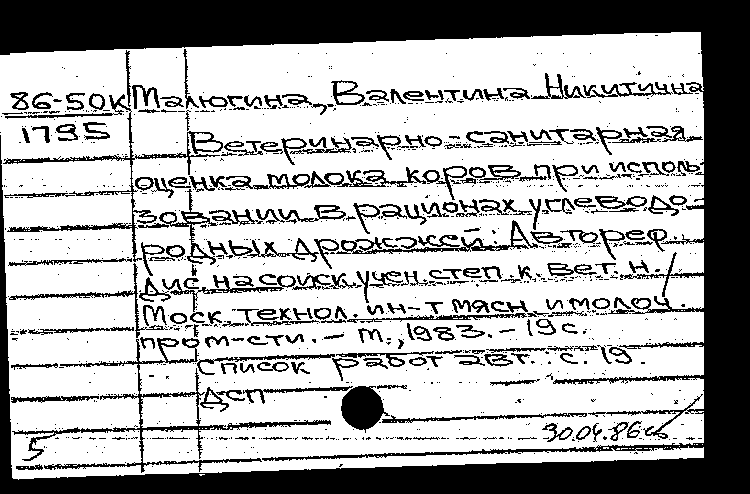 86-50к Малюгина, Валентина Никитична
1795
Ветеринарно-санитарная
оценка молока коров при исполь-
зовании в рационах углеводо-
родных дрожжей: Автореф.
дис. на соиск. учен. степ. к. вет. н. /
Моск. технол. ин-т мясн. и молоч.
пром-сти. - М., 1983. - 19 с.
Список работ авт.: с. 19.
ДСП
30.04.86
5